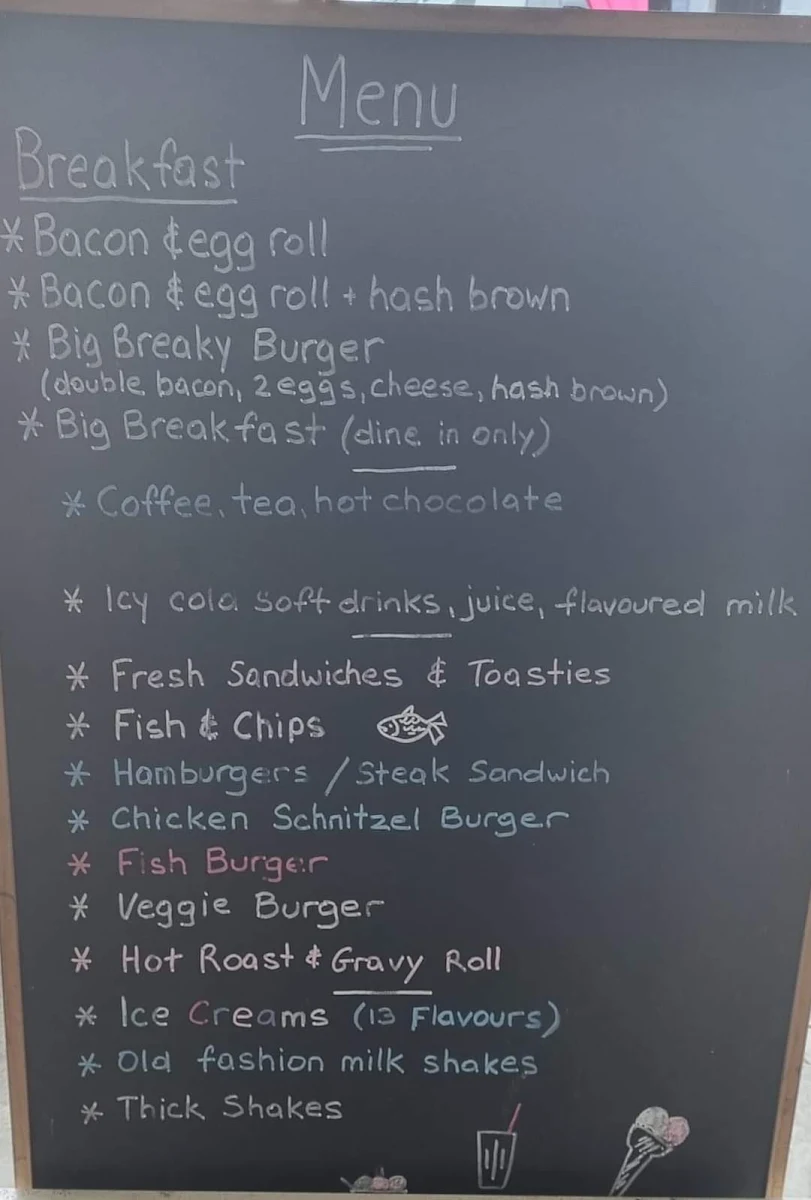 Menu
Breakfast
* Bacon & egg roll
* Bacon & egg roll + hash brown
* Big Breaky Burger
(double bacon, 2 eggs, cheese, hash brown)
* Big Breakfast (dine in only)
* Coffee, tea, hot chocolate
* Icy cold soft drinks, juice, flavoured milk
* Fresh Sandwiches & Toasties
* Fish & Chips
* Hamburgers / Steak Sandwich
* Chicken Schnitzel Burger
* Fish Burger
* Veggie Burger
* Hot Roast & Gravy Roll
* Ice Creams (13 Flavours)
* Old fashion milk shakes
* Thick Shakes